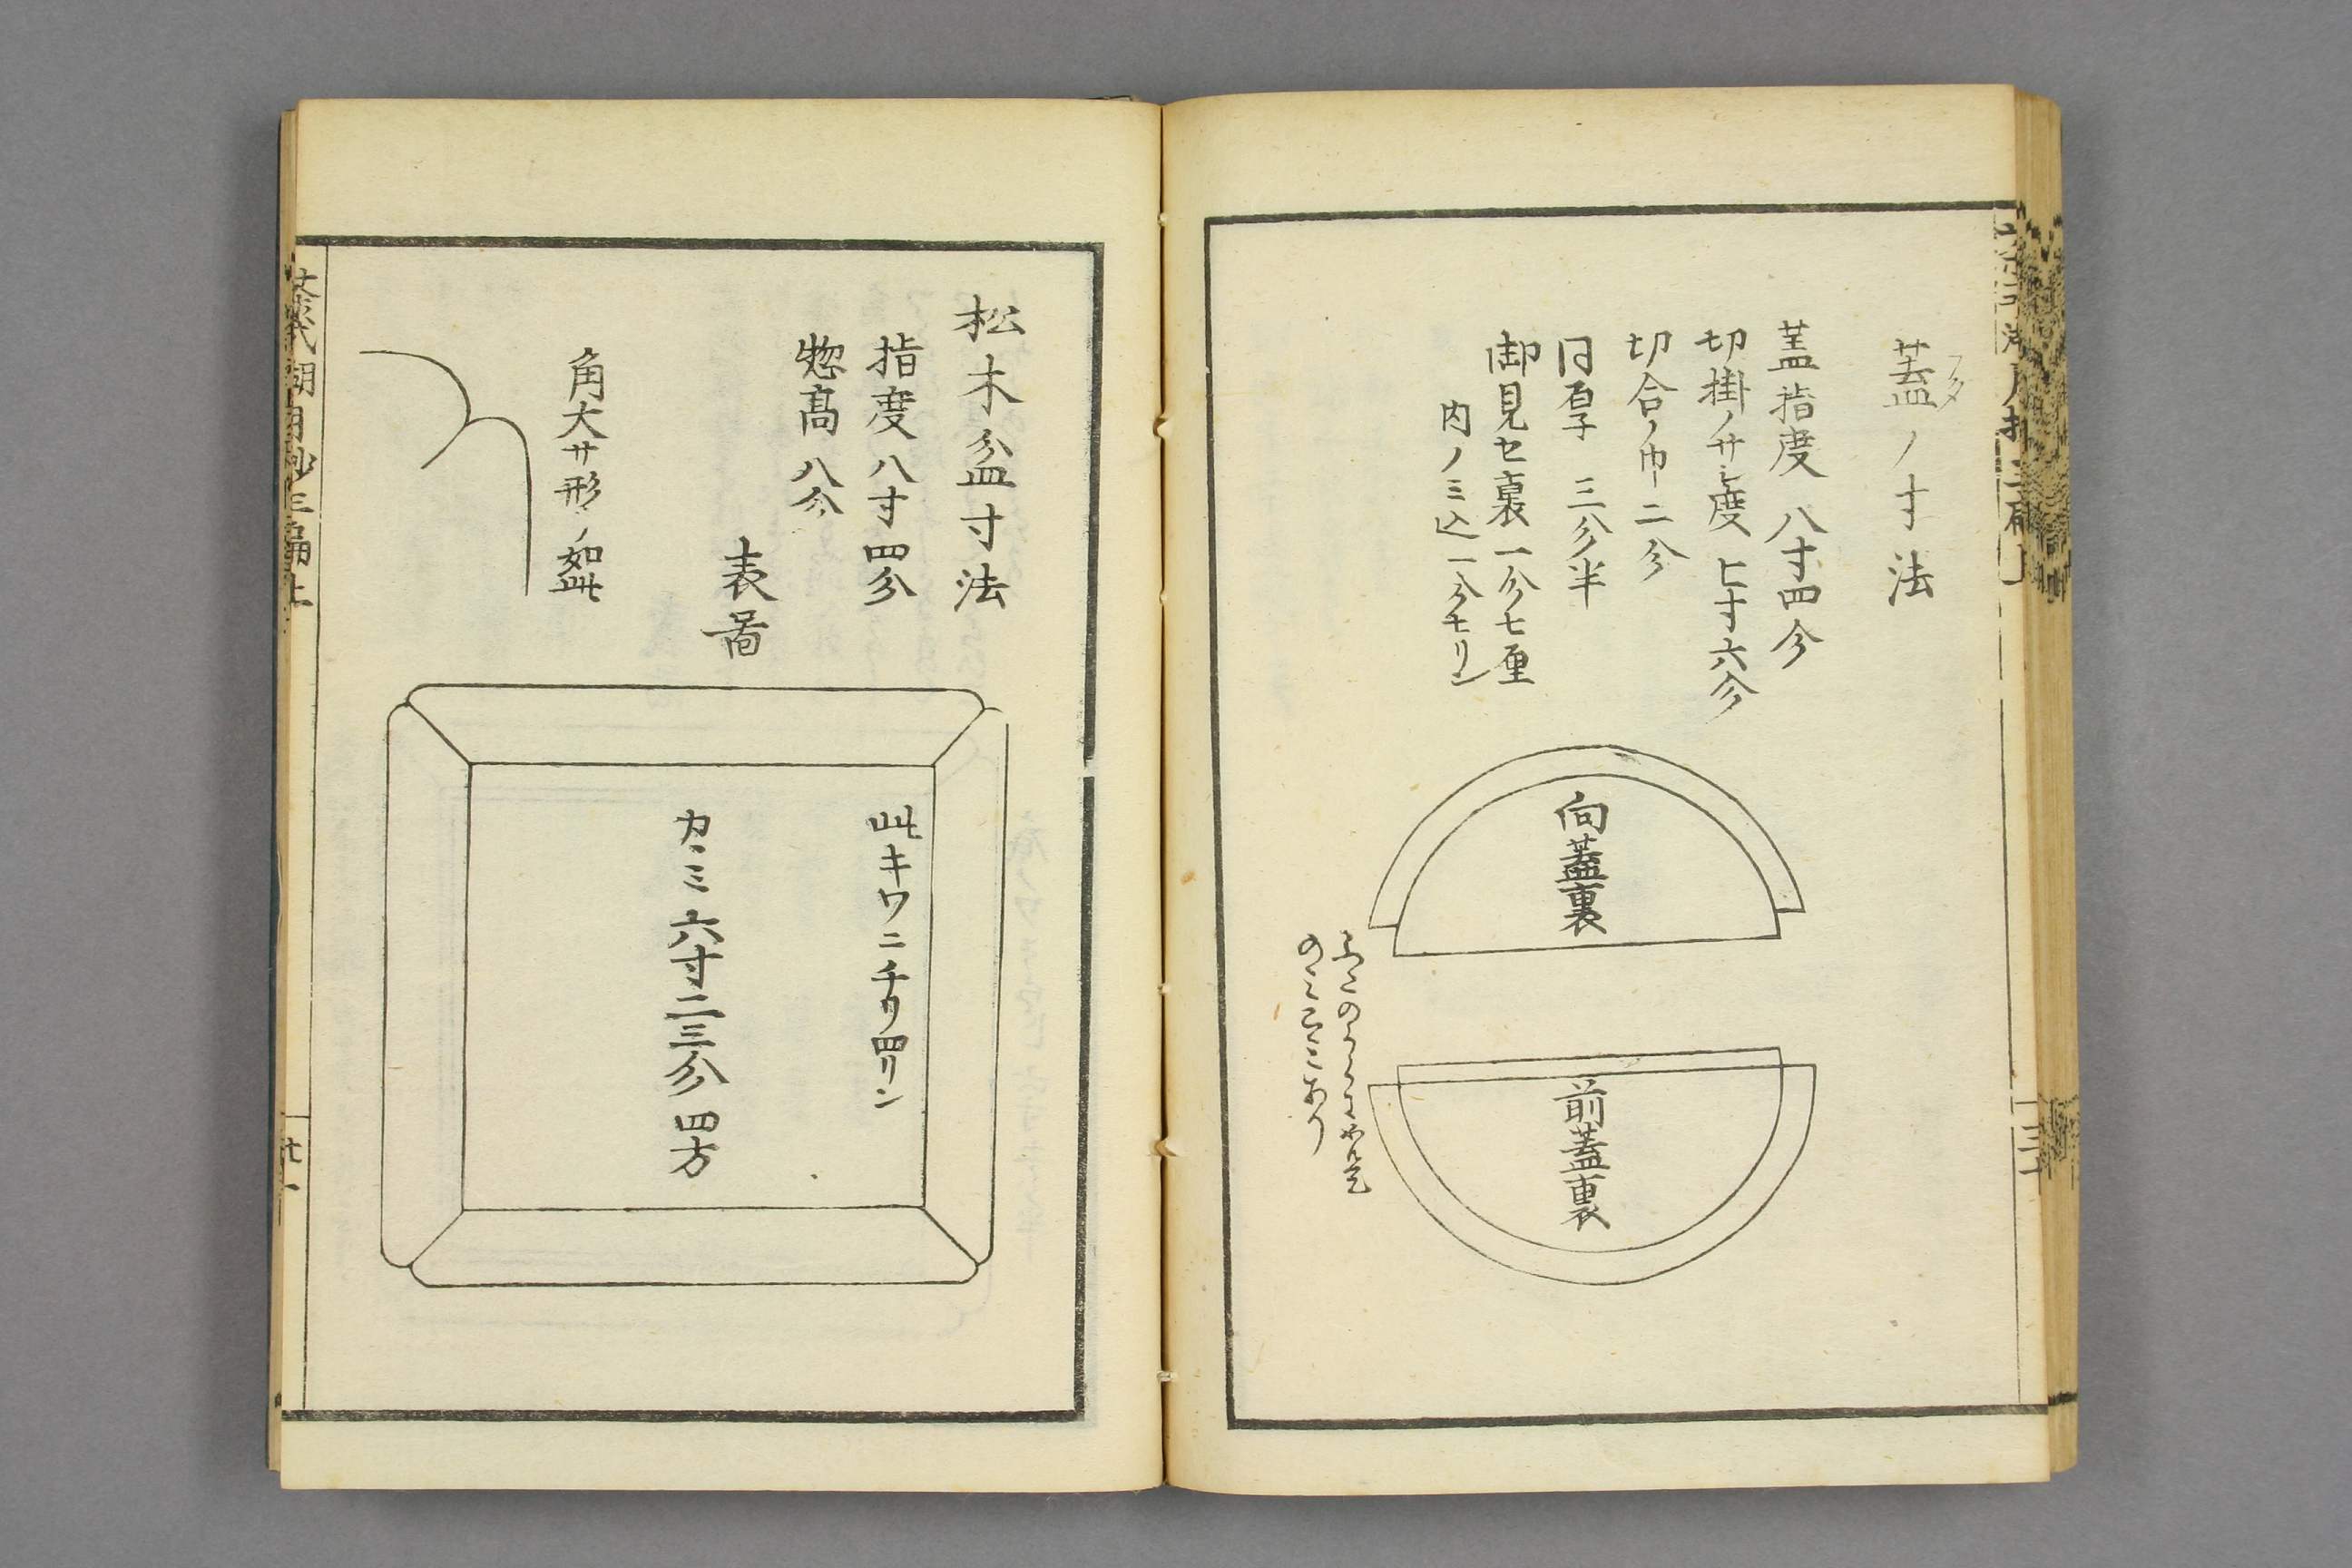 蓋ノ寸法
フタ
蓋指度 八寸四分
切掛ノサシ度 七寸六分
切合ノ巾 二分
同厚 三分半
御見セ裏 一分七厘
内ノミ込一分七リン
向蓋裏
前蓋裏
のミこミあり
松木盆寸法
指度 八寸四分
惣高 八分
表啚
角大サ形ノ如此
此キワニチリ四リン
カヽミ 六寸二三分 四方
茶式湖月抄三編上
廿一